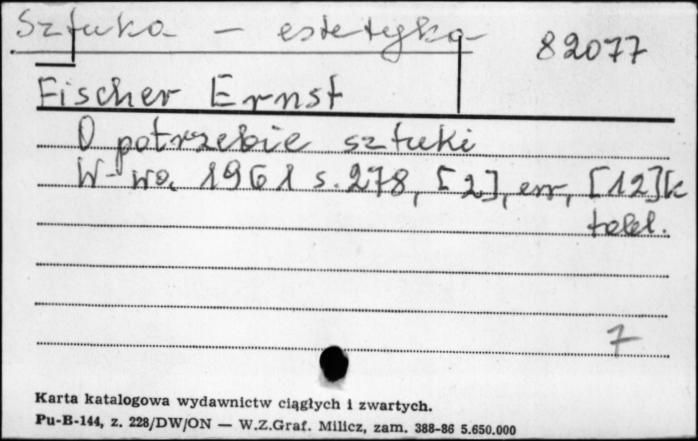 Sztuka - estetyka
82077
Fischer Ernst
O potrzebie sztuki
W-wa 1961 s. 278, [2], err, [12]k
tabl.
7
Karta katalogowa wydawnictw ciągłych i zwartych.
Pu-B-144, z. 228/DW/ON — W.Z.Graf. Milicz, zam. 388-86 5.650.000